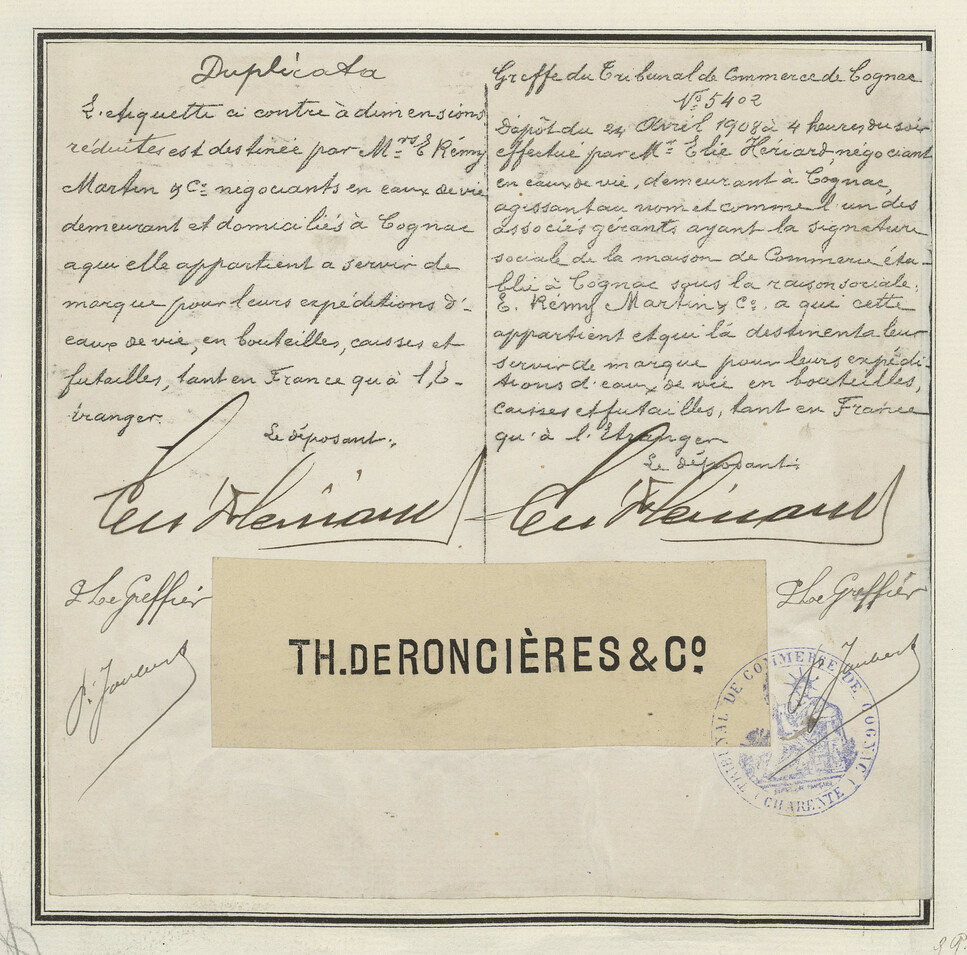 Duplicata
L'etiquette ci contre à dimensions
réduites est destinée par Mrs E Rémy
Martin & Cie négociants en eaux de vie
demeurant et domiciliés à Cognac
a qui elle appartient a servir de
marque pour leurs expéditions d'-
eaux de vie, en bouteilles, caisses et
futailles, tant en France qu'à l'É-
tranger.
Le déposant:
Le Greffier
P. Joubert
Greffe du Tribunal de Commerce de Cognac
No 5402
Dépôt du 24 Avril 1908 à 4 heures du soir
effectué par Mr Elie Hériard, négociant
en eaux de vie, demeurant à Cognac,
agissant au nom et comme l'un des
associés gérants ayant la signature
sociale de la maison de Commerce éta-
blie à Cognac sous la raison sociale:
E. Rémy Martin & Co. a qui cette
appartient et qui la destinent a leur
servir de marque pour leurs expédi-
tions d'eaux de vie en bouteilles,
caisses et futailles, tant en France
qu'à l'Etranger
Le déposant:
Le Greffier
Joubert
TH. DE RONCIÈRES & Co.
TRIBUNAL DE COMMERCE DE COGNAC
(CHARENTE)